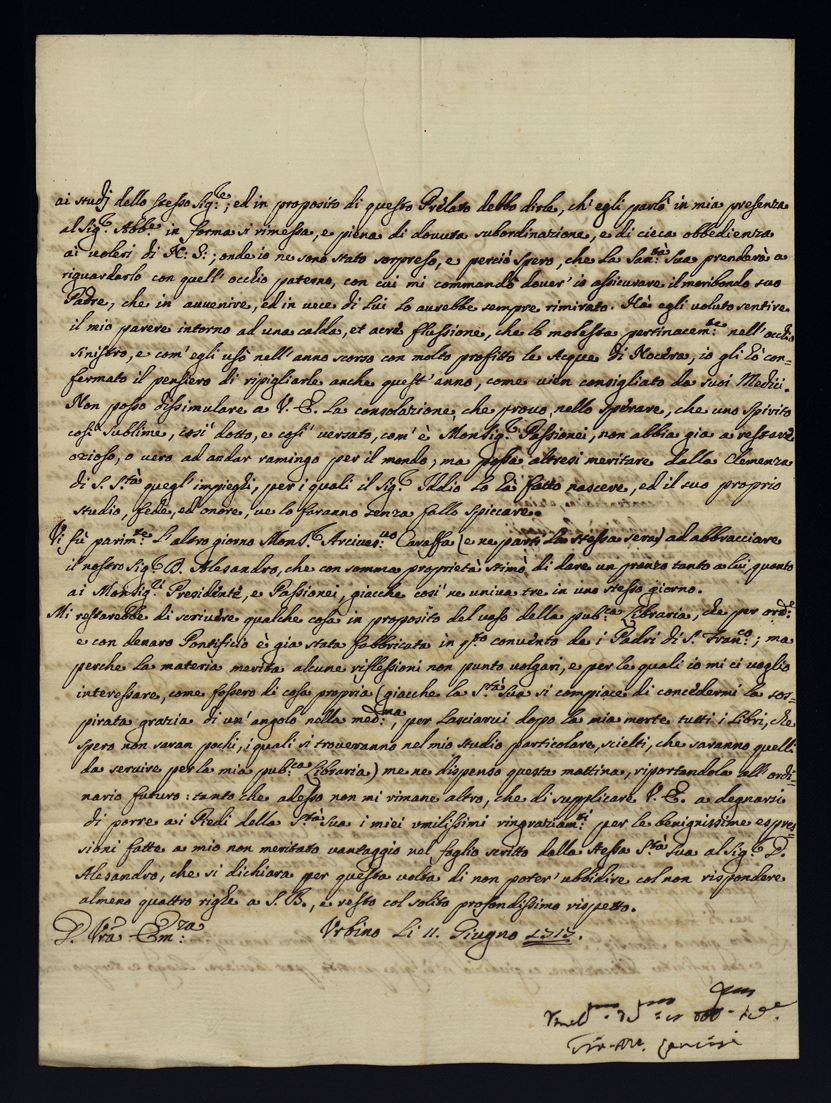 ai studj dello stesso Sig.re; ed in proposito di questo Prelato debbo dirle, ch' egli parlò in mia presenza
al Sig.r Abbe in forma sì rimessa, e piena di dovuta subordinazione, e di cieca obbedienza
ai voleri di N. S.; onde io ne sono stato sorpreso, e perciò spero, che la San.tà Sua prenderà a
riguardarlo con quell' occhio paterno, con cui mi commandò dover' io assicurare il moribondo suo
Padre, che in auuenire, ed in vece di lui lo aurebbe sempre rimirato. Hà egli voluto sentire
il mio parere intorno ad una calda, et acre flussione, che lo molesta pertinacem.te nell' occhio
sinistro, e com' egli usò nell' anno scorso con molto profitto le Acque di Nocera, io gli hò con=
fermato il pensiero di ripigliarle anche quest' anno, come vien consigliato da suoi Medici.
Non posso dissimulare a V. E. la consolazione, che prouo, nello sperare, che uno spirito
così sublime, così dotto, e così versato, com' è Monsig.r Passionei, non abbia già a restare
ozioso, o vero ad andar ramingo per il mondo; ma possa altresì meritare dalla Clemenza
di S. S.tà quegl' impieghi, per i quali il Sig.r Iddio lo hà fatto nascere, ed il suo proprio
studio, fede, ed onore, ve lo faranno senza fallo spiccare.
Vi fù parim.te l' altro giorno Mons.r Arciues.uo Caraffa (e ne partì la stessa sera) ad abbracciare
il nostro Sig.r D. Alesandro, che con somma proprietà stimò di dare un pranzo tanto a lui, quanto
ai Monsig.ri Presidente, e Passionei, giacche così ne univa tre in uno stesso giorno.
Mi restarebbe di scriuere qualche cosa in proposito del vaso della pub.ca Libraria, che per ord.e
e con denaro Pontificio è già stata fabbricata in q.sto conuento de i Padri di S. Fran.co; ma
perche la materia merita alcune riflessioni non punto volgari, e per le quali io mi ci voglio
interessare, come fossero di cosa propria (giacche la S.tà Sua si compiace di concedermi la sos=
pirata grazia di un' angolo nella med.ma, per lasciarui dopo la mia morte tutti i libri, che
spero non saran pochi, i quali si troueranno nel mio studio particolare, scielti, che saranno quelli
da seruire per la mia pub.ca Libraria) me ne dispenso questa mattina, riportandola all' ordi=
nario futuro: tanto che adesso non mi rimane altro, che di supplicare V. E. a degnarsi
di porre a i Piedi della S.tà Sua i miei umilissimi ringraziam.ti per le benignissime espres=
sioni fatte a mio non meritato vantaggio nel foglio scritto dalla stessa S.tà Sua al Sig.r D.
Alesandro, che si dichiara per questa volta di non poter' ubbidire col non rispondere
almeno quattro righe a S. B., e resto col solito profondissimo rispetto.
D. Vrà Em.za Vrbino li 11. Giugno 1717.